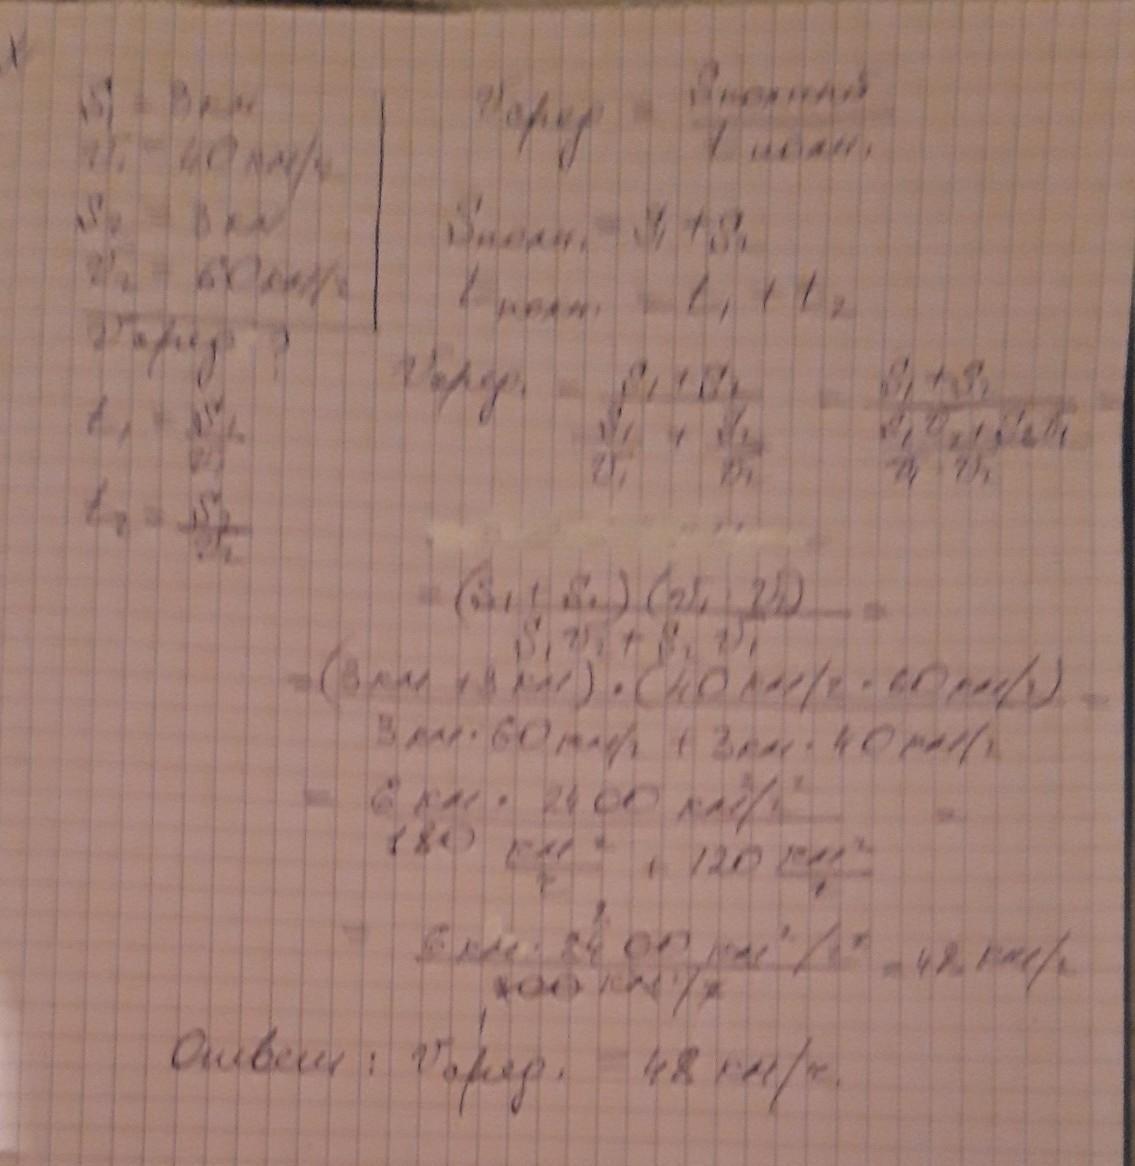 S₁ = 3 км
v₁ = 40 км/ч
S₂ = 3 км
v₂ = 60 км/ч
vсред ?
t₁ = S₁/v₁
t₂ = S₂/v₂
vсред = Sполный / tполн.
Sполн. = S₁ + S₂
tполн. = t₁ + t₂
vсред. = (S₁ + S₂) / (S₁/v₁ + S₂/v₂) = (S₁ + S₂) /
= (S₁ + S₂)(v₁ · v₂) / S₁v₂ + S₂v₁ =
= (3 км + 3 км) · (40 км/ч · 60 км/ч) / 3 км · 60 км/ч + 3 км · 40 км/ч =
= 6 км · 2400 км²/ч² / 180 км²/ч + 120 км²/ч =
= 6 км · 2400 км²/ч² / 300 км²/ч = 48 км/ч
Ответ: vсред. = 48 км/ч.